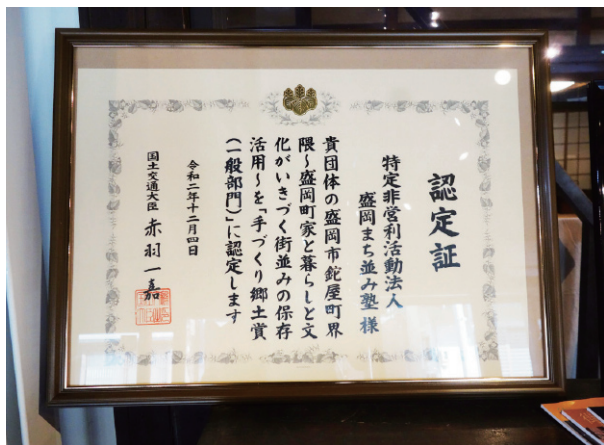 認定証
特定非営利活動法人
盛岡まち並み塾 様
貴団体の盛岡市鉈屋町界
隈~盛岡町家と暮らしと文
化がいきづく街並みの保存
活用~を「手づくり郷土賞
(一般部門)」に認定します
令和二年十二月四日
国土交通大臣 赤羽一嘉